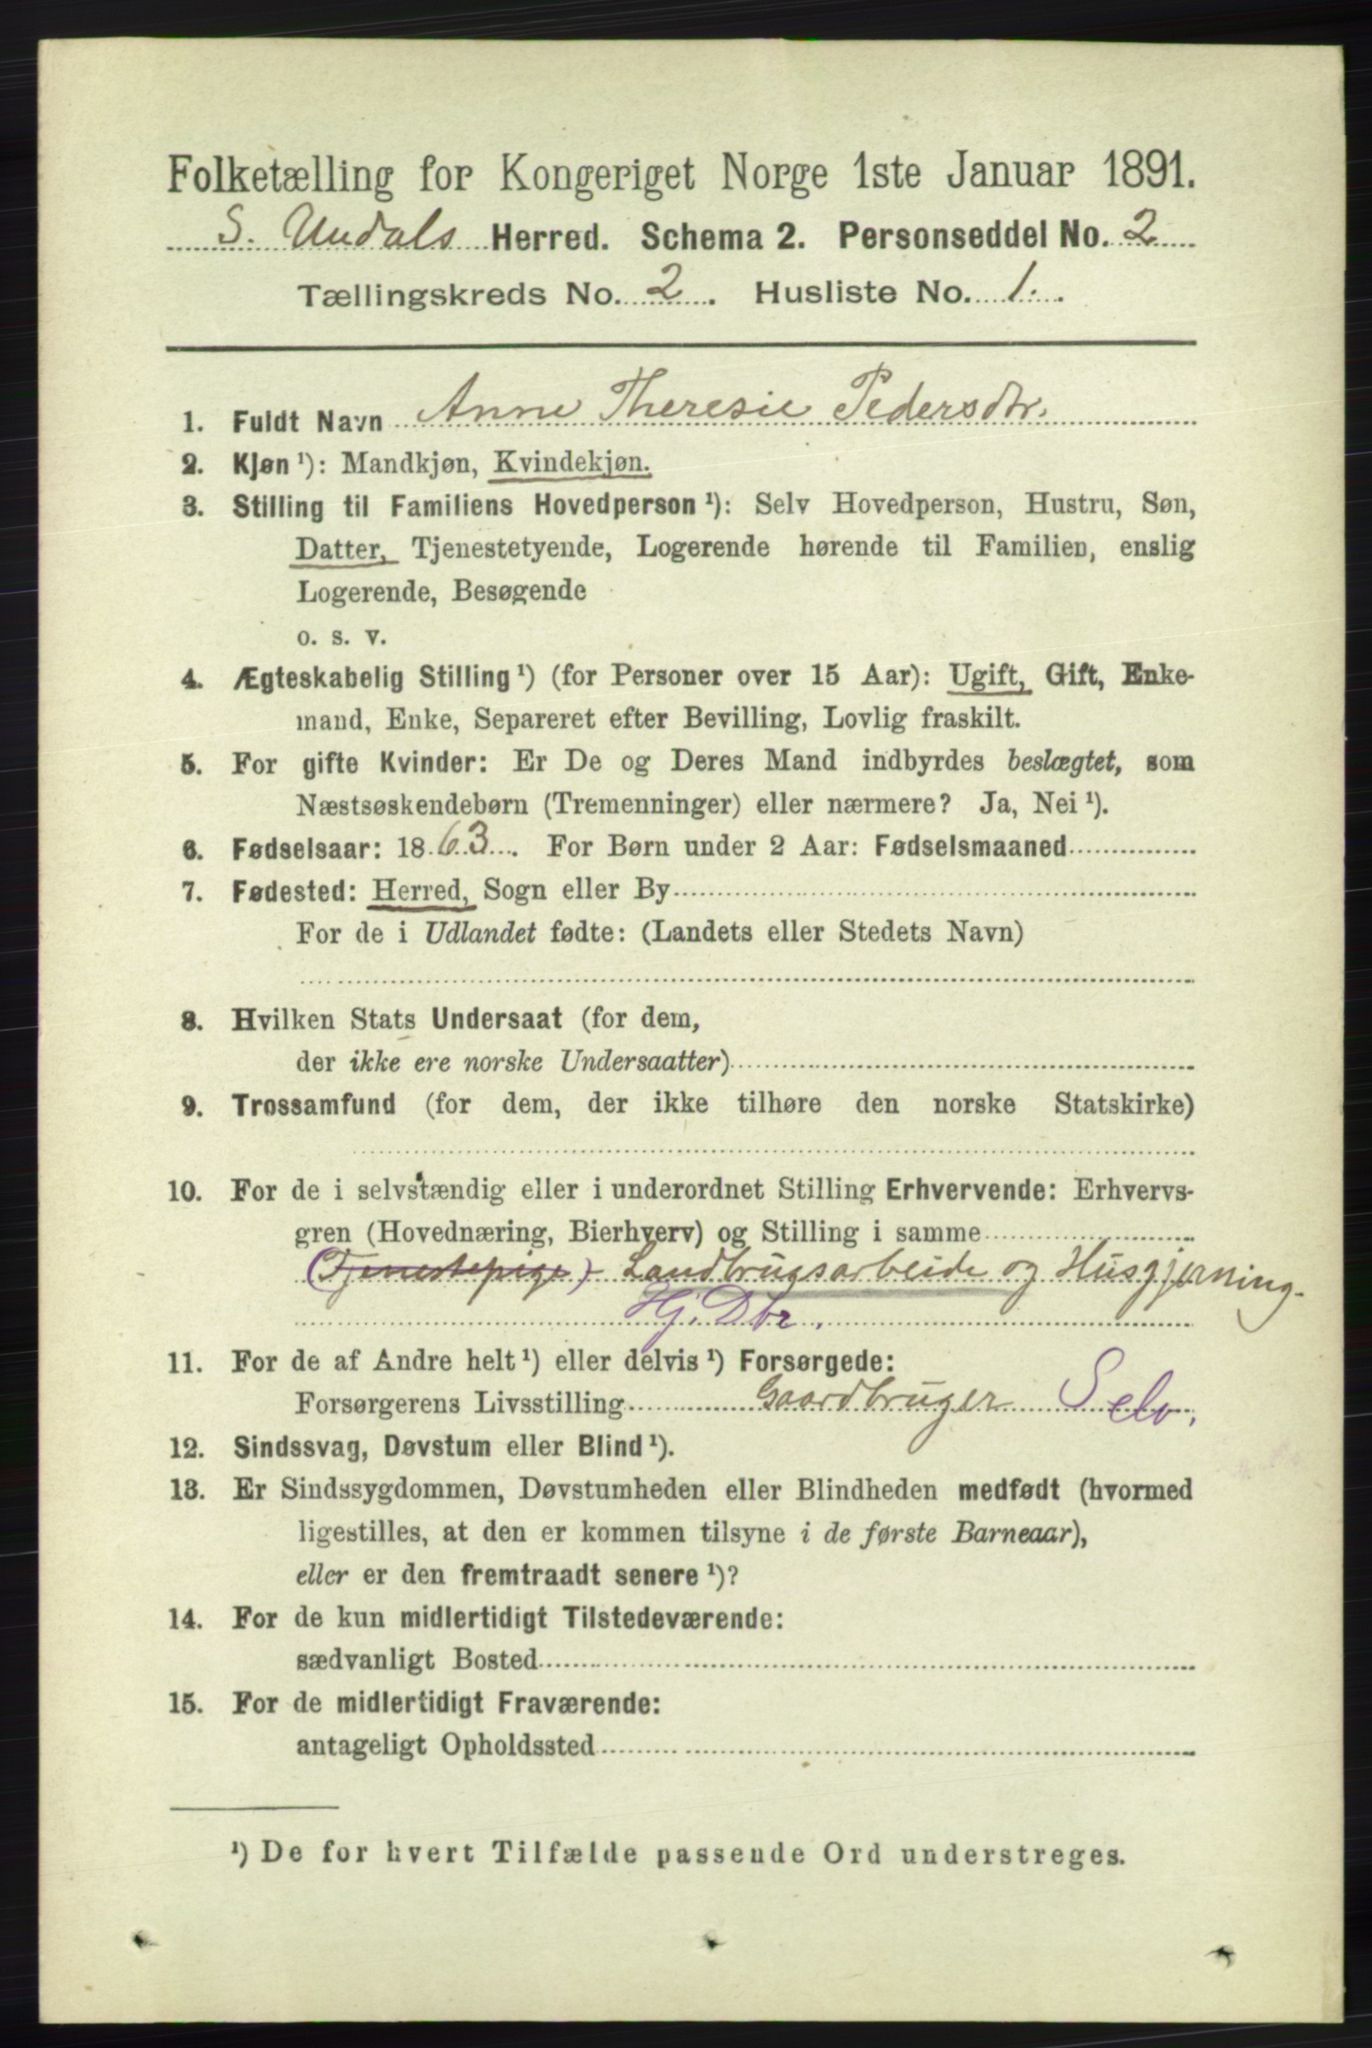 Folketælling for Kongeriget Norge 1ste Januar 1891.
S. Undals Herred. Schema 2. Personseddel No. 2
Tællingskreds No. 2. Husliste No. 1.
1. Fuldt Navn Anne Theresie Pedersdtr.
2. Kjøn ¹): Mandkjøn, Kvindekjøn.
3. Stilling til Familiens Hovedperson ¹): Selv Hovedperson, Hustru, Søn,
Datter, Tjenestetyende, Logerende hørende til Familien, enslig
Logerende, Besøgende
o. s. v.
4. Ægteskabelig Stilling ¹) (for Personer over 15 Aar): Ugift, Gift, Enke-
mand, Enke, Separeret efter Bevilling, Lovlig fraskilt.
5. For gifte Kvinder: Er De og Deres Mand indbyrdes beslægtet, som
Næstsøskendebørn (Tremenninger) eller nærmere? Ja, Nei ¹).
6. Fødselsaar: 1863. For Børn under 2 Aar: Fødselsmaaned
7. Fødested: Herred, Sogn eller By
For de i Udlandet fødte: (Landets eller Stedets Navn)
8. Hvilken Stats Undersaat (for dem,
der ikke ere norske Undersaatter)
9. Trossamfund (for dem, der ikke tilhøre den norske Statskirke)
10. For de i selvstændig eller i underordnet Stilling Erhvervende: Erhvervs-
gren (Hovednæring, Bierhverv) og Stilling i samme
(Tjenestepige) Landbrugsarbeide og Husgjerning.
Hj. Dtr.
11. For de af Andre helt ¹) eller delvis ¹) Forsørgede:
Forsørgerens Livsstilling Gaardbruger Selv.
12. Sindssvag, Døvstum eller Blind ¹).
13. Er Sindssygdommen, Døvstumheden eller Blindheden medfødt (hvormed
ligestilles, at den er kommen tilsyne i de første Barneaar),
eller er den fremtraadt senere ¹)?
14. For de kun midlertidigt Tilstedeværende:
sædvanligt Bosted
15. For de midlertidigt Fraværende:
antageligt Opholdssted
¹) De for hvert Tilfælde passende Ord understreges.